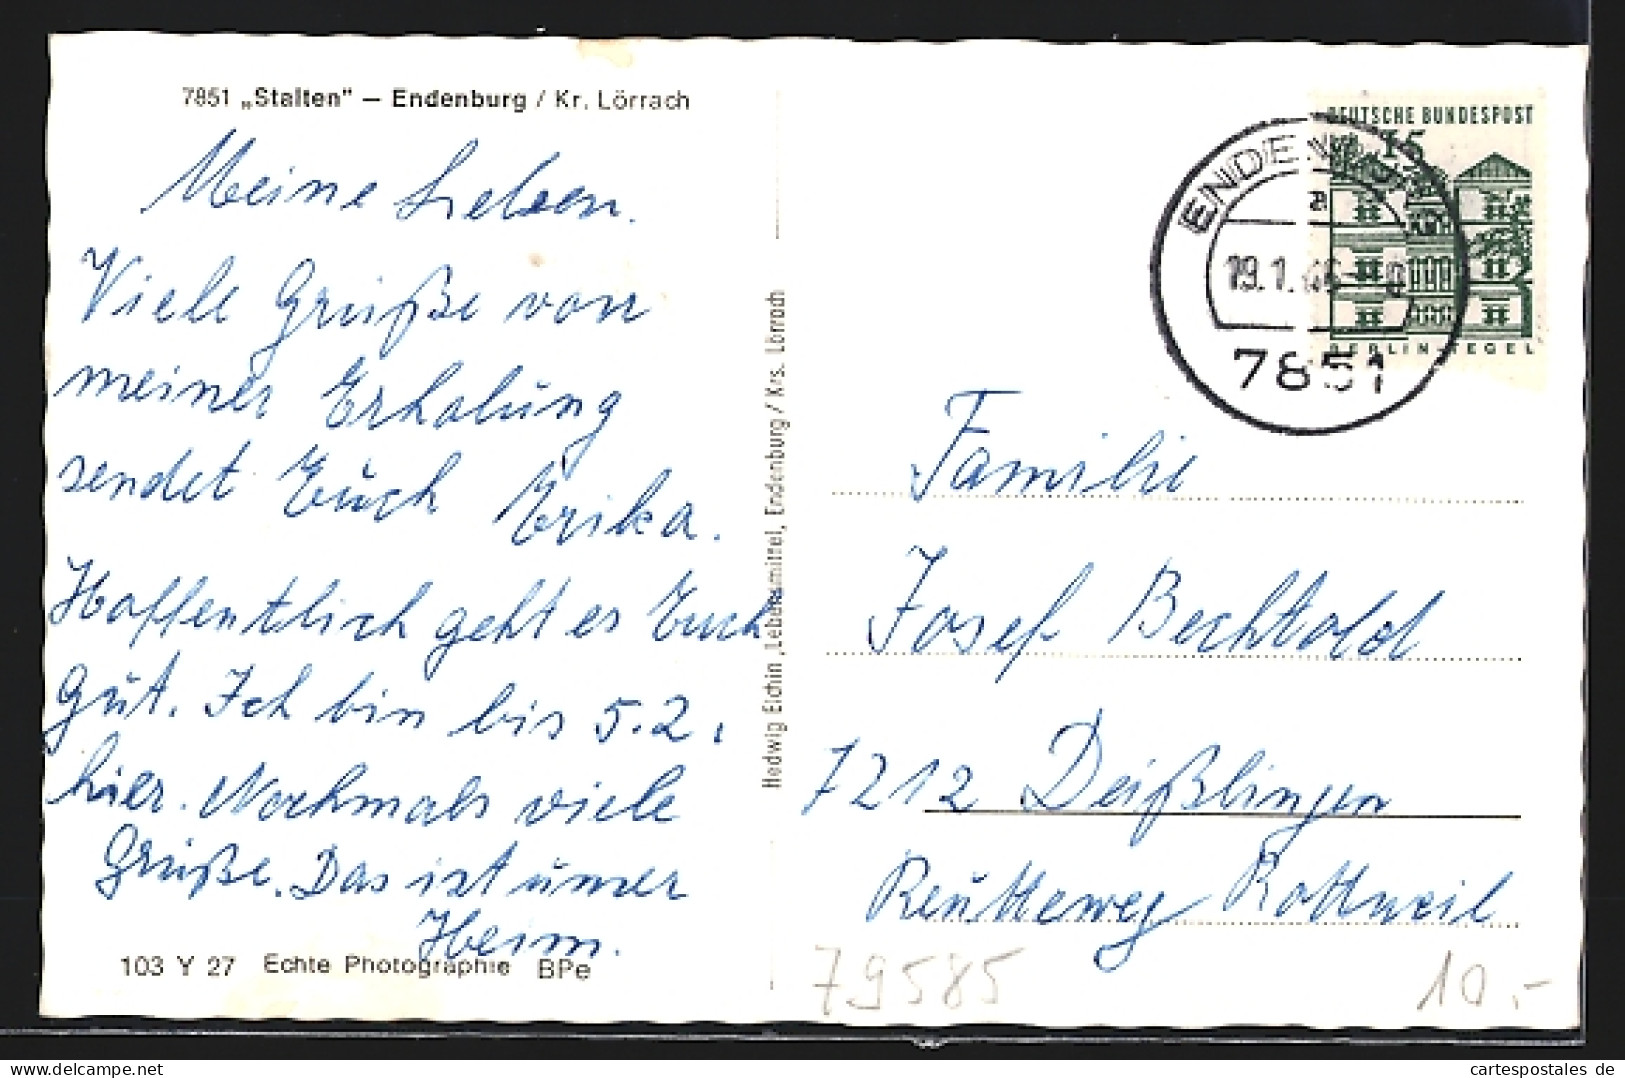 7851 „Stalten" – Endenburg / Kr. Lörrach
Meine Lieben.
Viele Grüße von
meiner Erholung
sendet Euch Erika.
Hoffentlich geht es Euch
gut. Ich bin bis 5.2.
hier. Nochmals viele
Grüße. Das ist unser
Heim.
103 Y 27 Echte Photographie BPe
Hedwig Eichin, Lebensmittel, Endenburg / Krs. Lörrach
DEUTSCHE BUNDESPOST
15
BERLIN-TEGEL
a
19.1.66
7851
Familie
Josef Bechtold
7212 Deißlingen
Reutteweg Rottweil
79585
10.-
cartespostales de